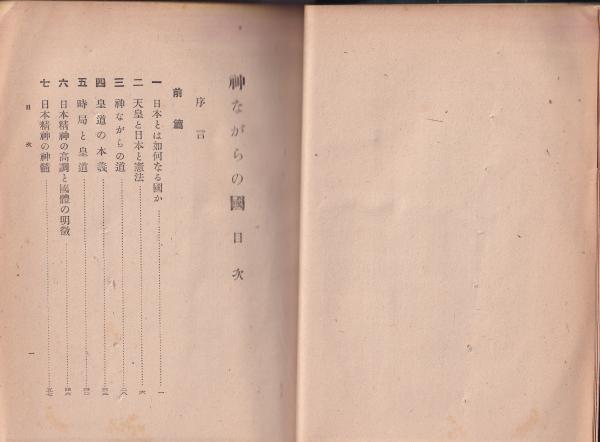 神ながらの國 目次
序言
前篇
一 日本とは如何なる國か 一
二 天皇と日本と憲法 六
三 神ながらの道 二八
四 皇道の本義
五 時局と皇道
六 日本精神の高調と國體の明徵
七 日本精神の神髓 五七
目次 一